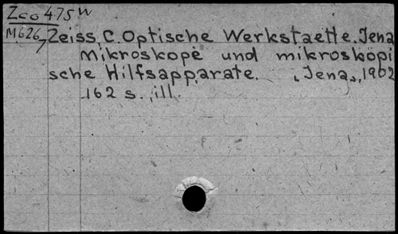 Zoo 475 W
M626 Zeiss, C. Optische Werkstaette. Jena
7
Mikroskope und mikroskopi
sche Hilfsapparate. Jena, 1902
162 s. ill.